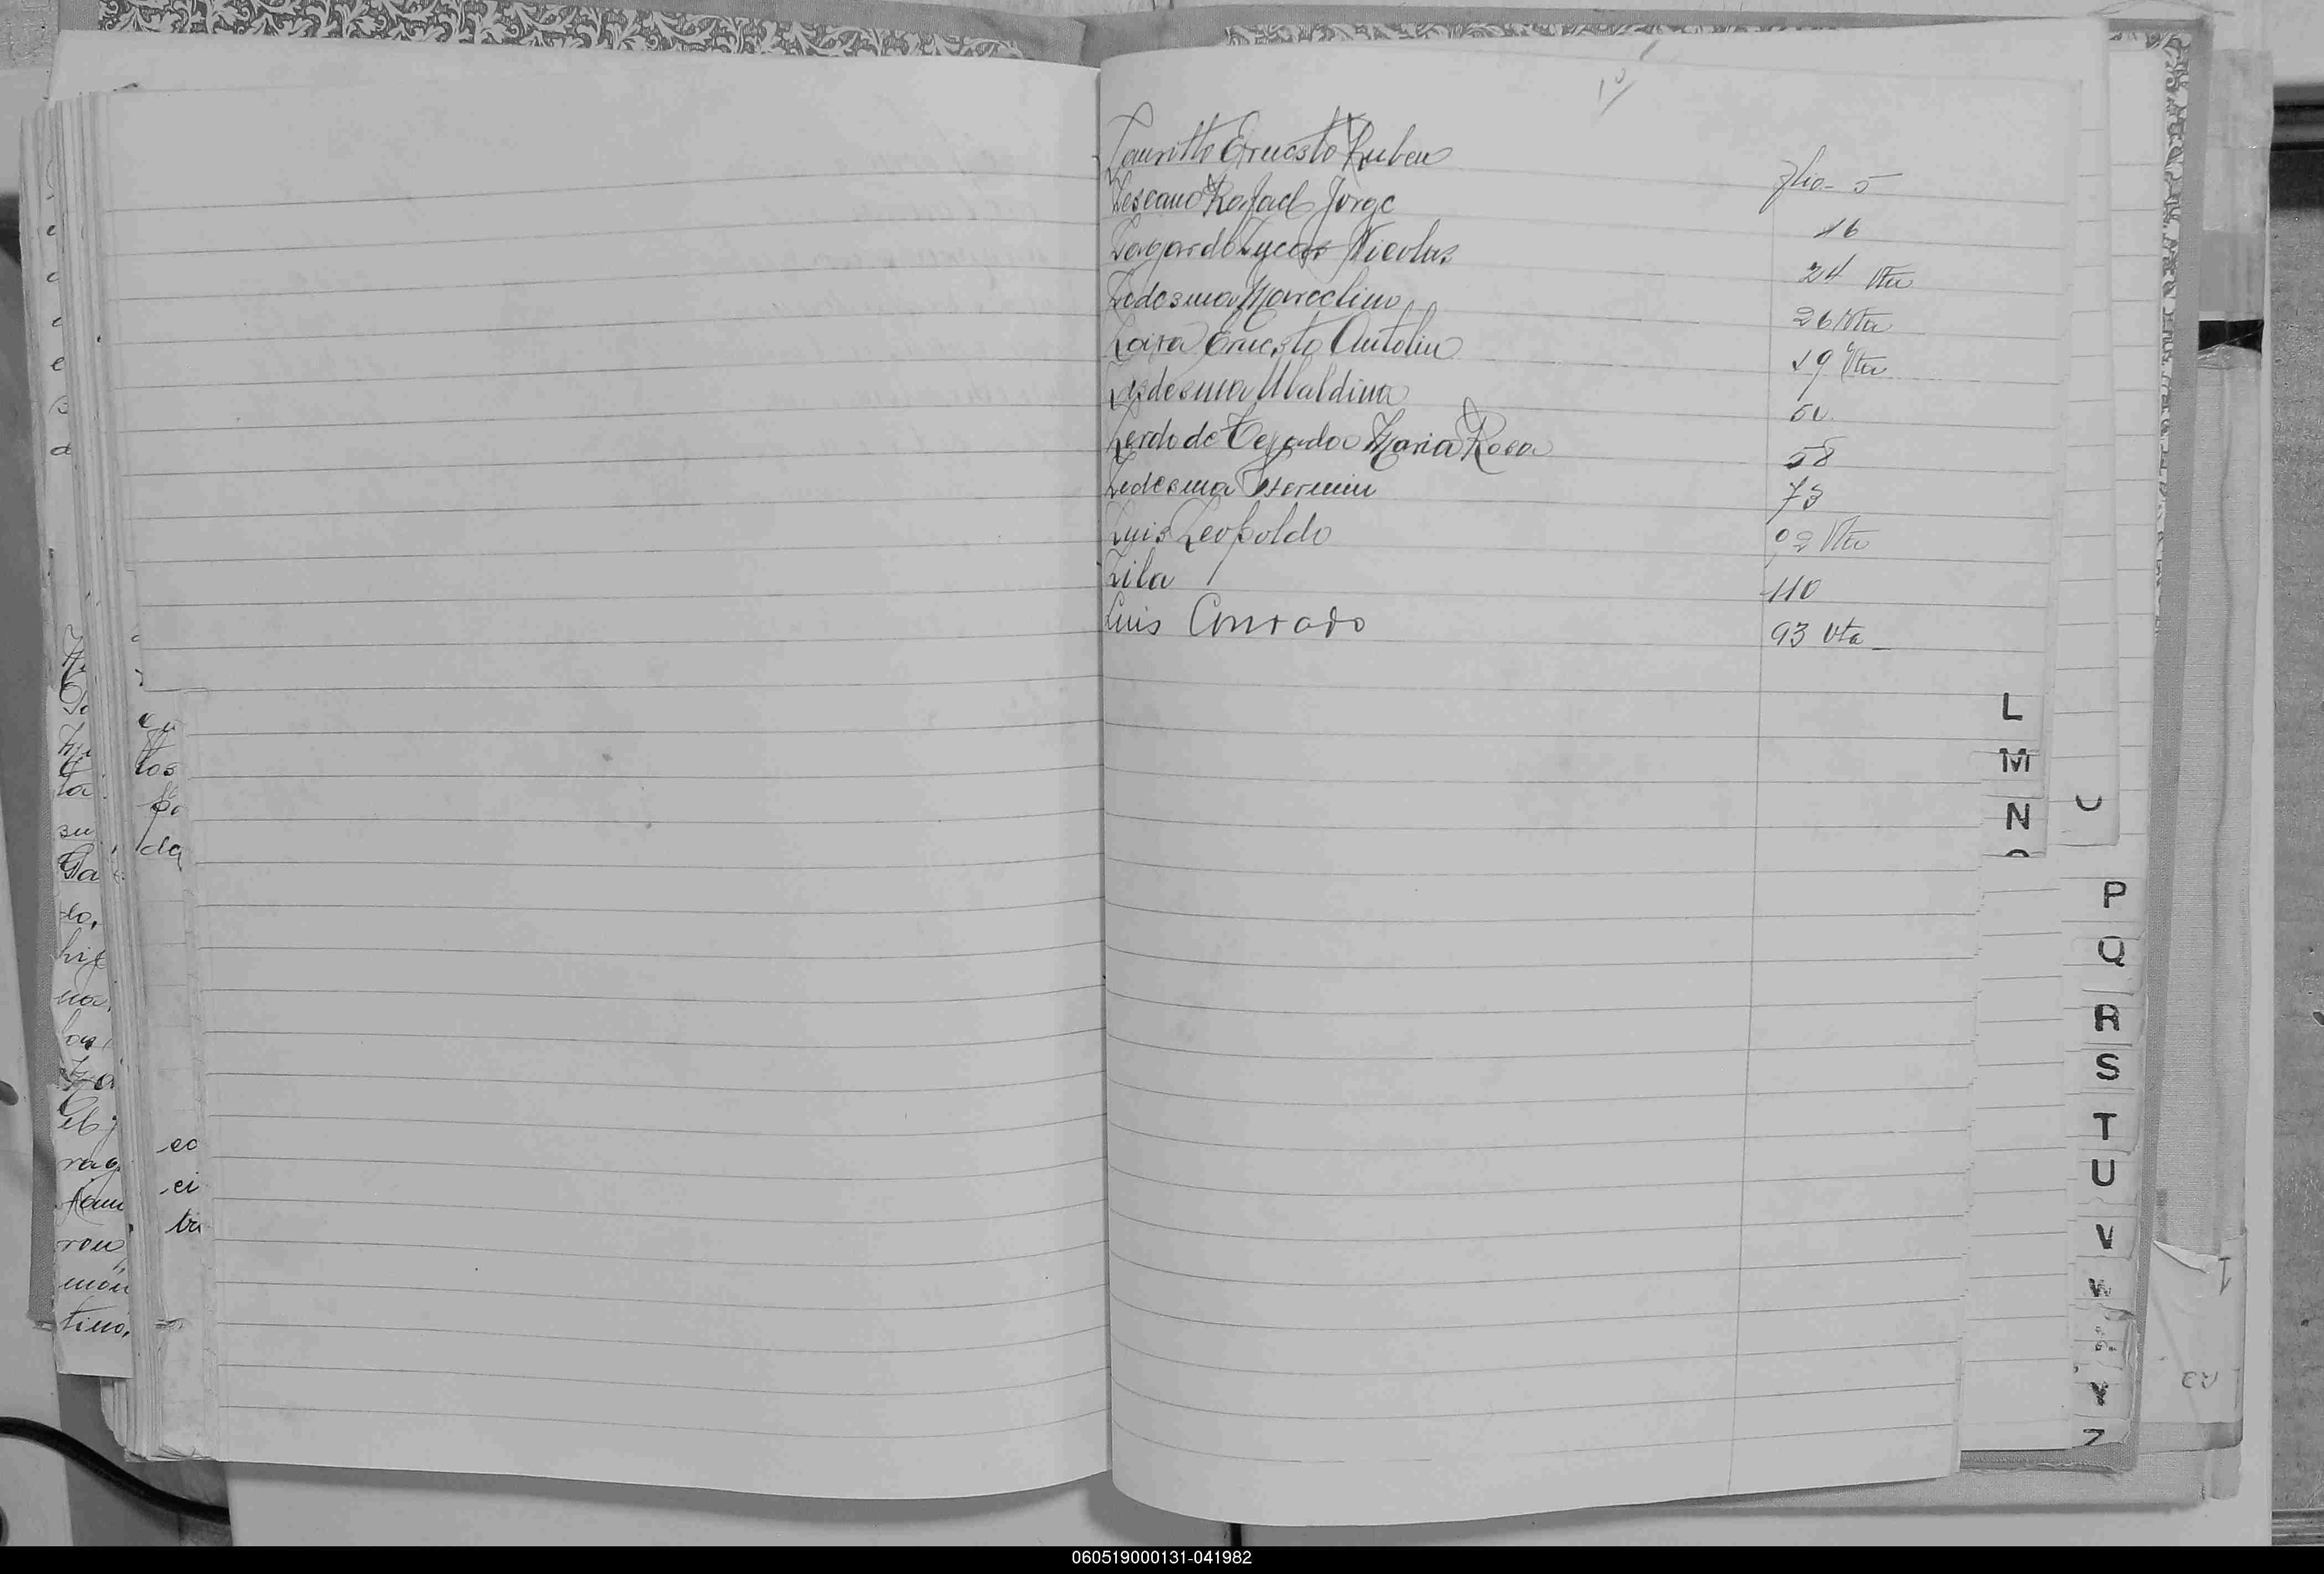 Lauritto Ernesto Ruben flio- 5
Lescano Rafael Jorge 16
Lagardo Lucas Nicolas 24 Vta
Ledesma Marcelino 26 Vta
Loira Ernesto Antolin 29 Vta
Ledesma Ubaldina 50
Lerdo de Tejada Maria Rosa 58
Ledesma Fermin 73
Luis Leopoldo 92 Vta
Lila 110
Luis Conrado 93 Vta
L
M
N
P
Q
R
S
T
U
V
W
Y
Z
060519000131-041982